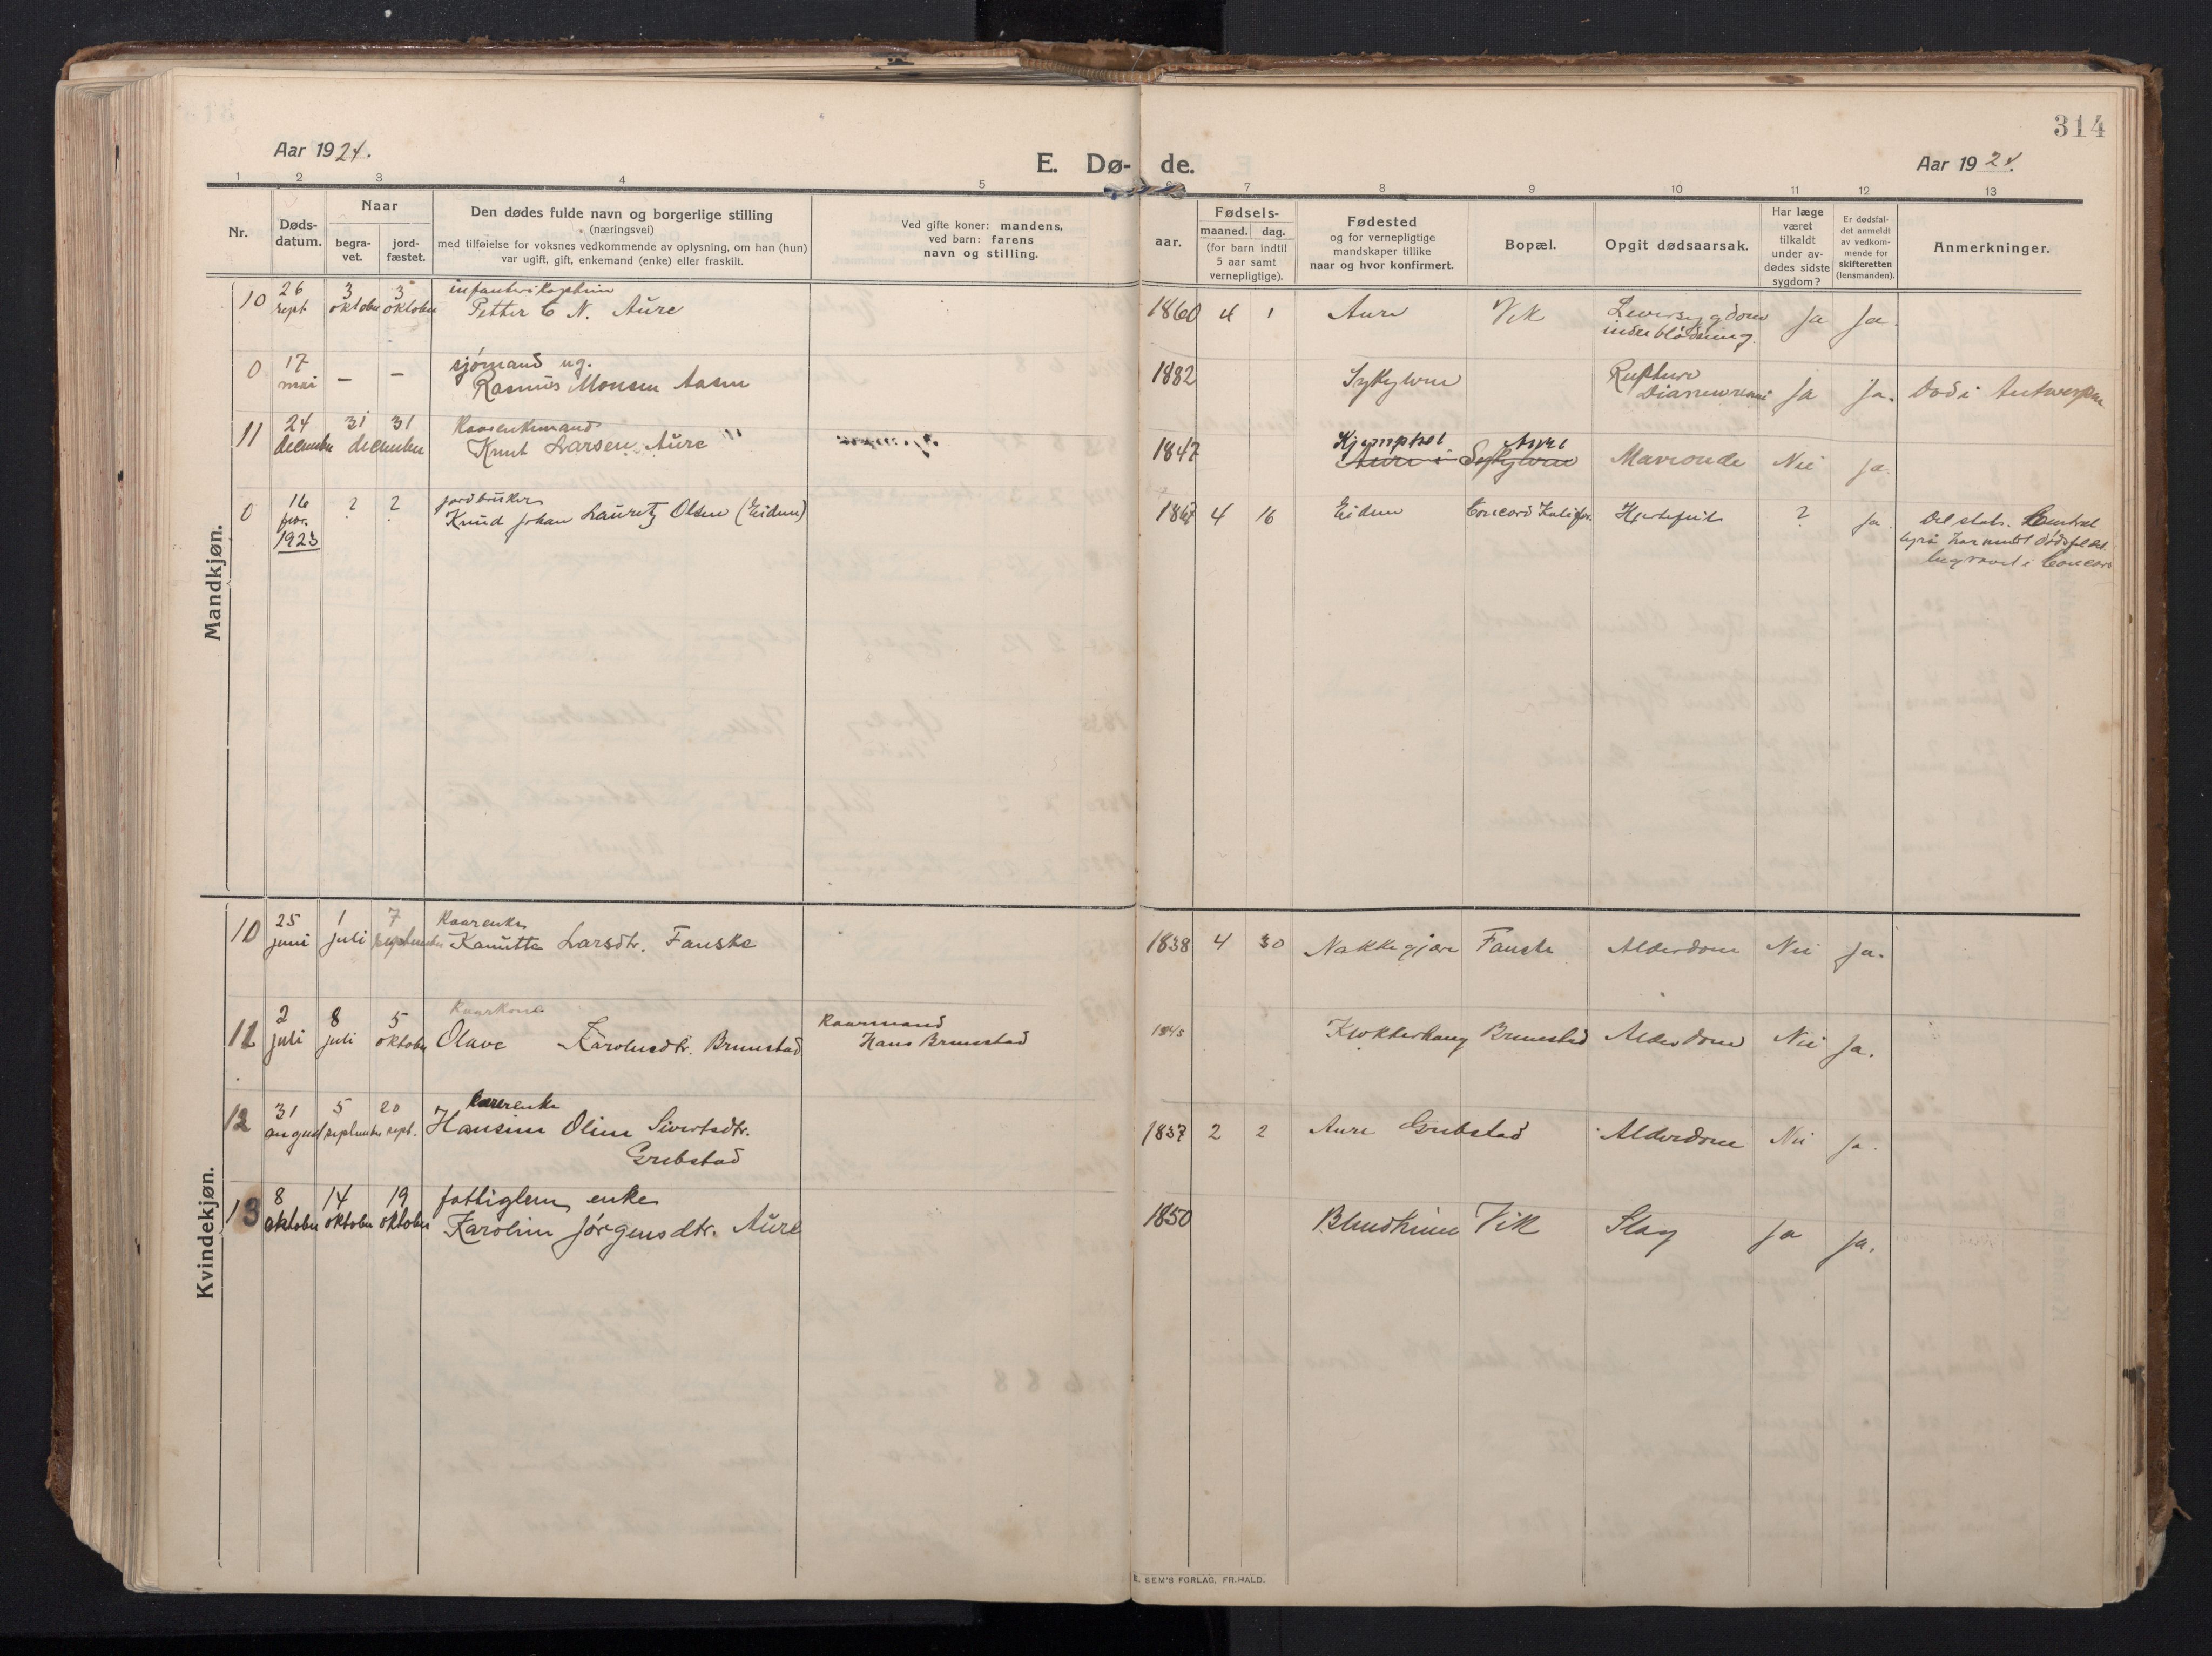 314
Aar 1924.
E. Dø- de.
Aar 1924.
1 2 3 4 5 6 7 8 9 10 11 12 13
Nr.
Døds-
datum.
Naar
begra-
vet.
jord-
fæstet.
Den dødes fulde navn og borgerlige stilling
(næringsvei)
med tilføielse for voksnes vedkommende av oplysning, om han (hun)
var ugift, gift, enkemand (enke) eller fraskilt.
Ved gifte koner: mandens,
ved barn: farens
navn og stilling.
aar.
Fødsels-
maaned. dag.
(for barn indtil
5 aar samt
vernepligtige).
Fødested
og for vernepligtige
mandskaper tillike
naar og hvor konfirmert.
Bopæl.
Opgit dødsaarsak.
Har læge
været
tilkaldt
under av-
dødes sidste
sygdom?
Er dødsfal-
det anmeldt
av vedkom-
mende for
skifteretten
(lensmanden).
Anmerkninger.
Mandkjøn.
10 26 sept 3 oktober 3 oktober
infanterikaptein
Petter C N. Aure
1860 4 1 Aure Vik Leversygdom
inderblødning. Ja Ja.
0 17 mai — —
sjømand ug.
Rasmus Monsen Aasen
1882 Sykylven Ruptura Ja Ja. Død i Antwerpen
11 24 december 31 31 december
Kaarenkemand
Knut Larsen Aure
1847 Aure
Aure i Sykylven Nei Ja.
0 16 febr. 1923 ? ?
jordbruker
Knud Johan Lauritz Olsen (Eidem)
1867 4 16 Eidem Concord Kalifor. Hjertefeil ? Ja. Det stat. Central
byrå har meldt dødsfaldet.
begravet i Concord
Kvindekjøn.
10 25 juni 1 juli 7 september
Kaarenke
Kanutte Larsdtr. Fauske
1838 4 30 Nakkegjære Fauske Alderdom Nei Ja.
11 2 juli 8 juli 5 oktober
Kaarkone
Olave Karolusdtr. Brunstad
Kaarmand
Hans Brunstad
1845 Klokkerhaug Brunstad Alderdom Nei Ja.
12 31 august 5 september 20 sept.
Kaarenke
Hansine Oline Sivertsdtr.
Grebstad
1837 2 2 Aure Grebstad Alderdom Nei Ja.
13 8 oktober 14 oktober 19 oktober
fattiglem, enke
Karoline Jørgensdtr. Aure
1850 Blindheim Vik Slag Ja Ja.
E. SEM'S FORLAG, FR.HALD.